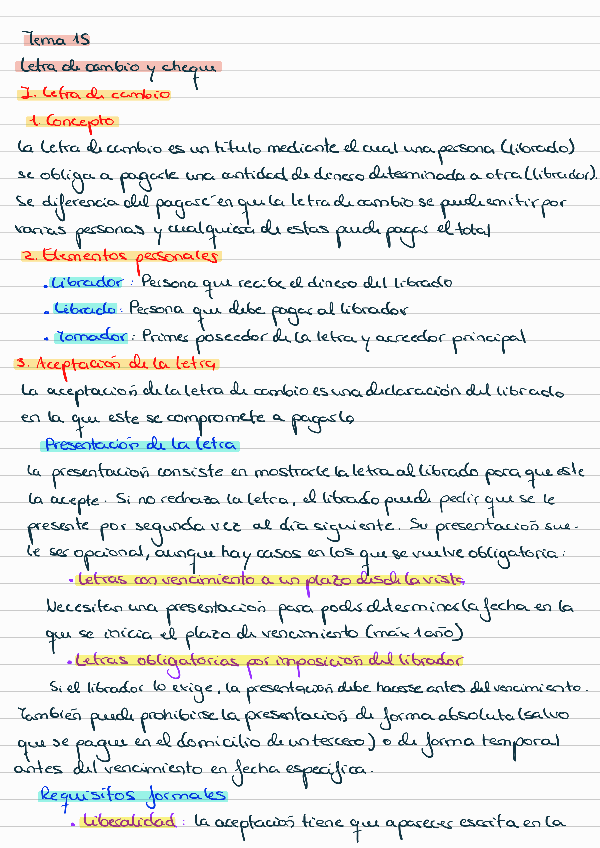 Tema 15
Letra de cambio y cheque
I. Letra de cambio
1. Concepto
La letra de cambio es un título mediante el cual una persona (librado)
se obliga a pagarle una cantidad de dinero determinada a otra (librador).
Se diferencia del pagaré en que la letra de cambio se puede emitir por
varias personas y cualquiera de estas puede pagar el total
2. Elementos personales
• Librador: Persona que recibe el dinero del librado
• Librado: Persona que debe pagar al librador
• Tomador: Primer poseedor de la letra y acreedor principal
3. Aceptación de la letra
La aceptación de la letra de cambio es una declaración del librado
en la que este se compromete a pagarla
Presentación de la letra
La presentación consiste en mostrarle la letra al librado para que este
la acepte. Si no rechaza la letra, el librado puede pedir que se le
presente por segunda vez al día siguiente. Su presentación sue-
le ser opcional, aunque hay casos en los que se vuelve obligatoria:
• Letras con vencimiento a un plazo desde la vista
Necesitan una presentación para poder determinar la fecha en la
que se inicia el plazo de vencimiento (máx 1 año)
• Letras obligatorias por imposición del librador
Si el librador lo exige, la presentación debe hacerse antes del vencimiento.
También puede prohibirse la presentación de forma absoluta (salvo
que se pague en el domicilio de un tercero) o de forma temporal
antes del vencimiento en fecha específica.
Requisitos formales
• Liberalidad: la aceptación tiene que aparecer escrita en la